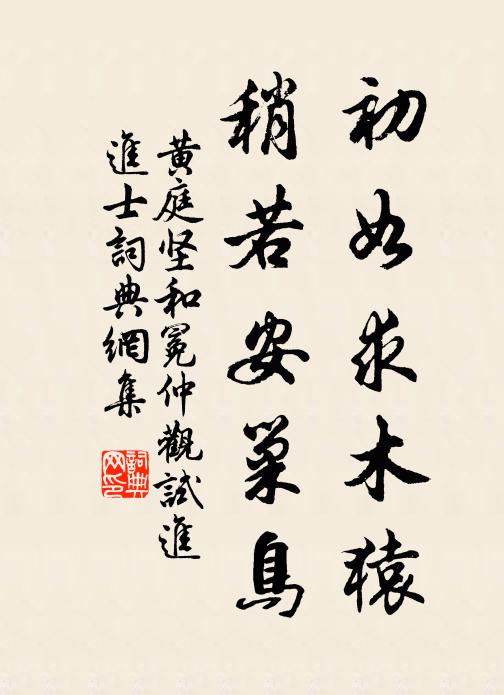 初如求木猿
稍若安巢鳥
黄庭坚和冕仲觀試進
進士詞典網集
詞典网印